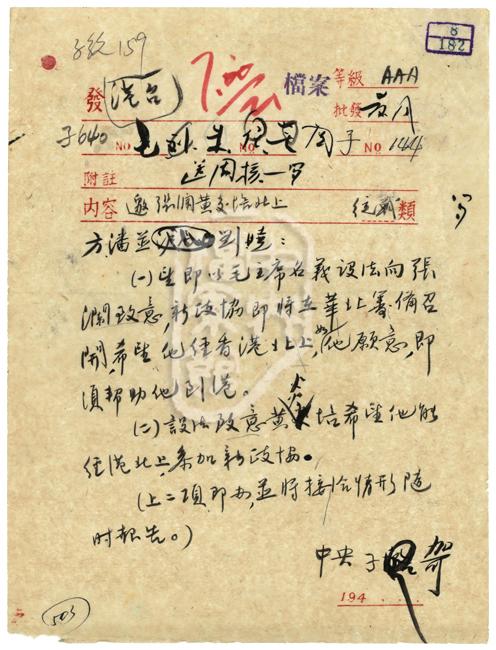 8
182
子文159
發 港台
檔案 等級 AAA
批發
子640 NO
子 NO 144
附註 送周核一网
内容 邀張瀾黄炎培北上 統戰 類
方、潘並 劉曉：
(一)望即以毛主席名義設法向張
瀾致意，新政協即將在華北籌備召
開，希望他経香港北上，如他願意，即
須幫助他到港。
(二)設法致意黄炎培希望他能
経港北上，参加新政協。
(上二項即办，並將接洽情形随
时報告。)
中央 子
194
503